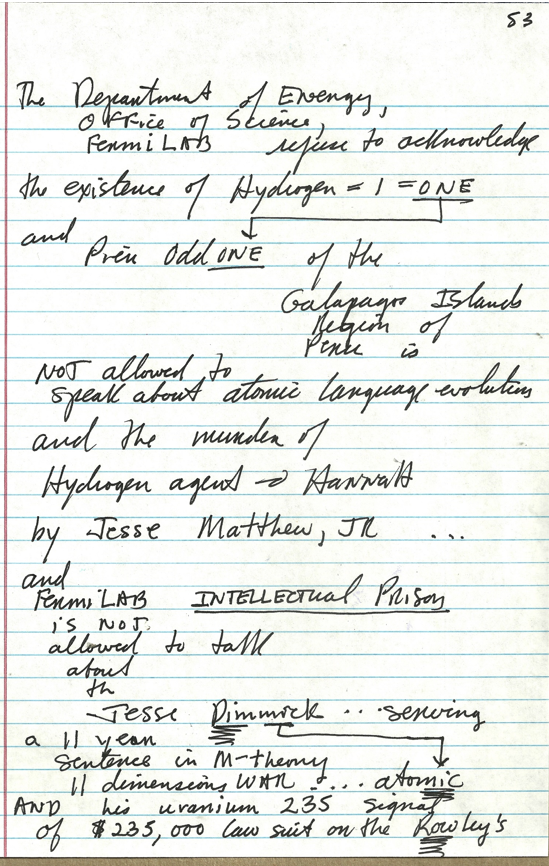 53
The Department of Energy,
Office of Science,
FermiLAB refuse to acknowledge
the existence of Hydrogen = 1 = ONE
and
Prěu OddONE of the
Galapagos Islands
Region of
Peru is
NOT allowed to
speak about atomic language evolution
and the murder of
Hydrogen agent → HannaH
by Jesse Matthew, JR ...
and
FermiLAB INTELLECTUAL PRISON
is NOT
allowed to talk
about
th
Jesse Dimmick ... serving
a 11 year
sentence in M-theory
11 dimensions WAR ... atomic
AND his uranium 235 signal
of $235,000 law suit on the Rowley's